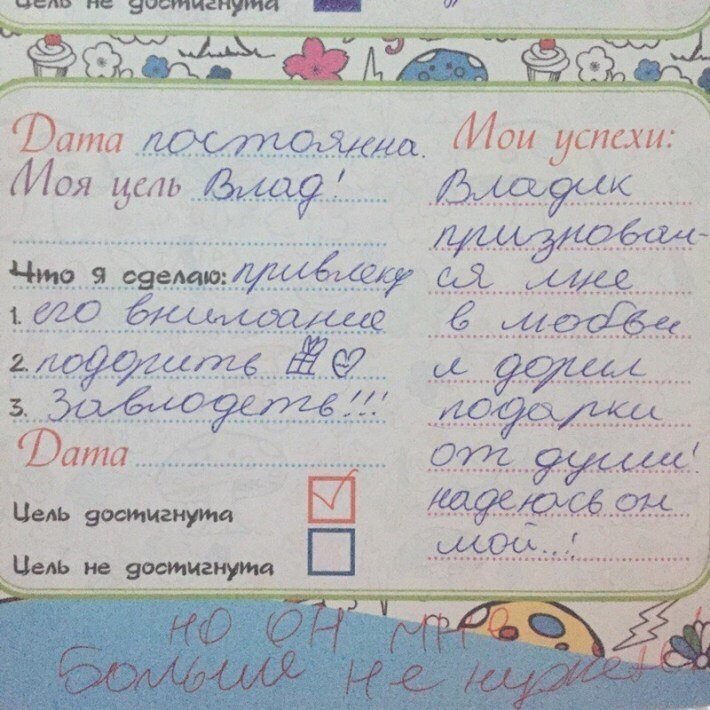 Цель не достигнута
Дата постоянна.
Моя цель Влад!
Что я сделаю: привлеку
1. его внимоание
2. подорить
3. Завлодеть!!!
Дата
Цель достигнута
Цель не достигнута
Мои успехи:
Владик
признован-
ся мне
в любви
и дорил
подарки
от души!
надеюсь он
мой..!
но он мне
больше не нужен